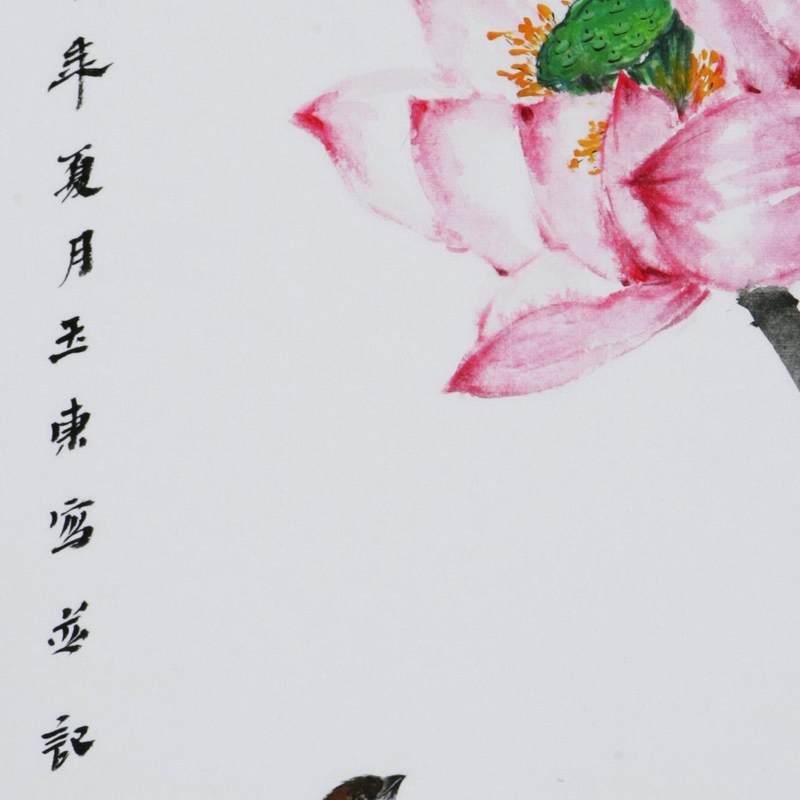 年夏月玉東寫並記